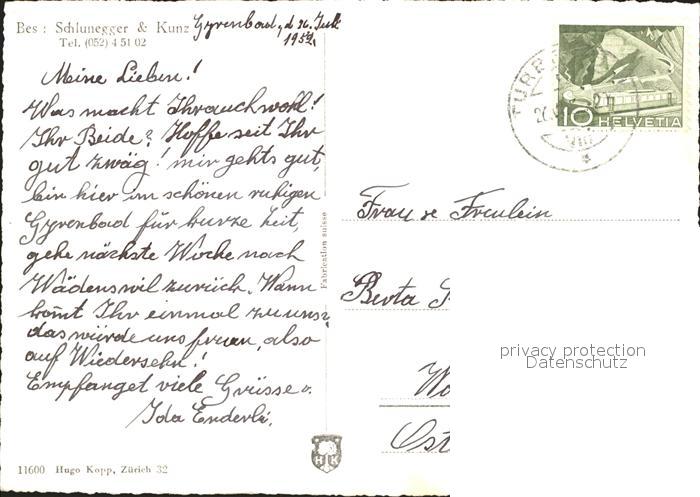 Bes : Schlunegger & Kunz
Tel. (052) 4 51 02
Gyrenbad, d 26. Juli
1952,
Meine Lieben!
Was macht Ihr auch wohl!
Ihr Beide? Hoffe seit Ihr
gut zwäg! mir gehts gut,
bin hier im schönen ruhigen
Gyrenbad für kurze Zeit,
gehe nächste Woche nach
Wädenswil zurück. Wann
kommt Ihr einmal zu uns?
das würde uns freuen, also
auf Wiedersehn!
Empfanget viele Grüsse v.
Ida Enderli,
11600 Hugo Kopp, Zürich 32
Fabrication suisse
HK
TURB
VIII
10 HELVETIA
Frau & Freulein
Berta
Wa
Ost
privacy protection
Datenschutz